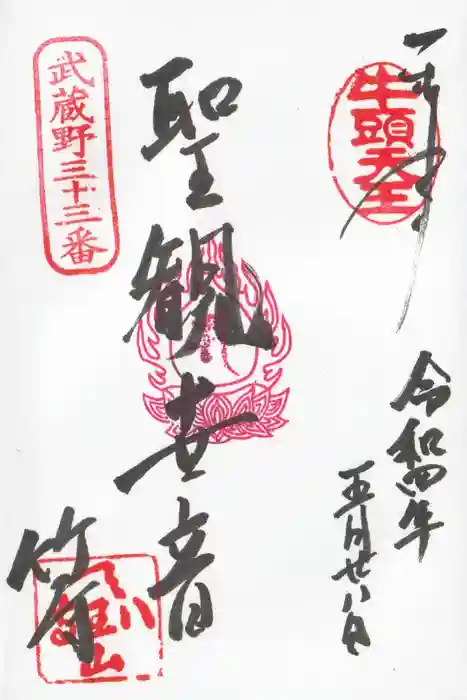 奉拝
牛頭天王
令和四年
五月廿八日
聖観世音
武蔵野三十三番
竹寺